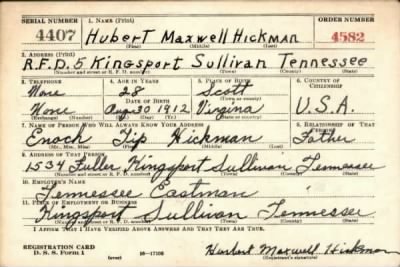 SERIAL NUMBER 1. NAME (Print) ORDER NUMBER
4407 Hubert Maxwell Hickman 4582
(First) (Middle) (Last)
2. ADDRESS (Print)
R.F.D. 5 Kingsport Sullivan Tennessee
(Number and street or R. F. D. number) (Town) (County) (State)
3. TELEPHONE 4. AGE IN YEARS 5. PLACE OF BIRTH 6. COUNTRY OF CITIZENSHIP
None 28 Scott
DATE OF BIRTH (Town or county)
None Aug 30 1912 Virginia U.S.A.
(Mo.) (Day) (Yr.) (State or country)
7. NAME OF PERSON WHO WILL ALWAYS KNOW YOUR ADDRESS 8. RELATIONSHIP OF THAT PERSON
Enoch Tip Hickman Father
9. ADDRESS OF THAT PERSON
1534 Fuller Kingsport Sullivan Tennessee
(Number and street or R. F. D. number) (Town) (County) (State)
10. EMPLOYER'S NAME
Tennessee Eastman
11. PLACE OF EMPLOYMENT OR BUSINESS
Kingsport Sullivan Tennessee
(Number and street or R. F. D. number) (Town) (County) (State)
I AFFIRM THAT I HAVE VERIFIED ABOVE ANSWERS AND THAT THEY ARE TRUE.
REGISTRATION CARD
D. S. S. Form 1 (over) 16—17105 Hubert Maxwell Hickman
(Registrant's signature)